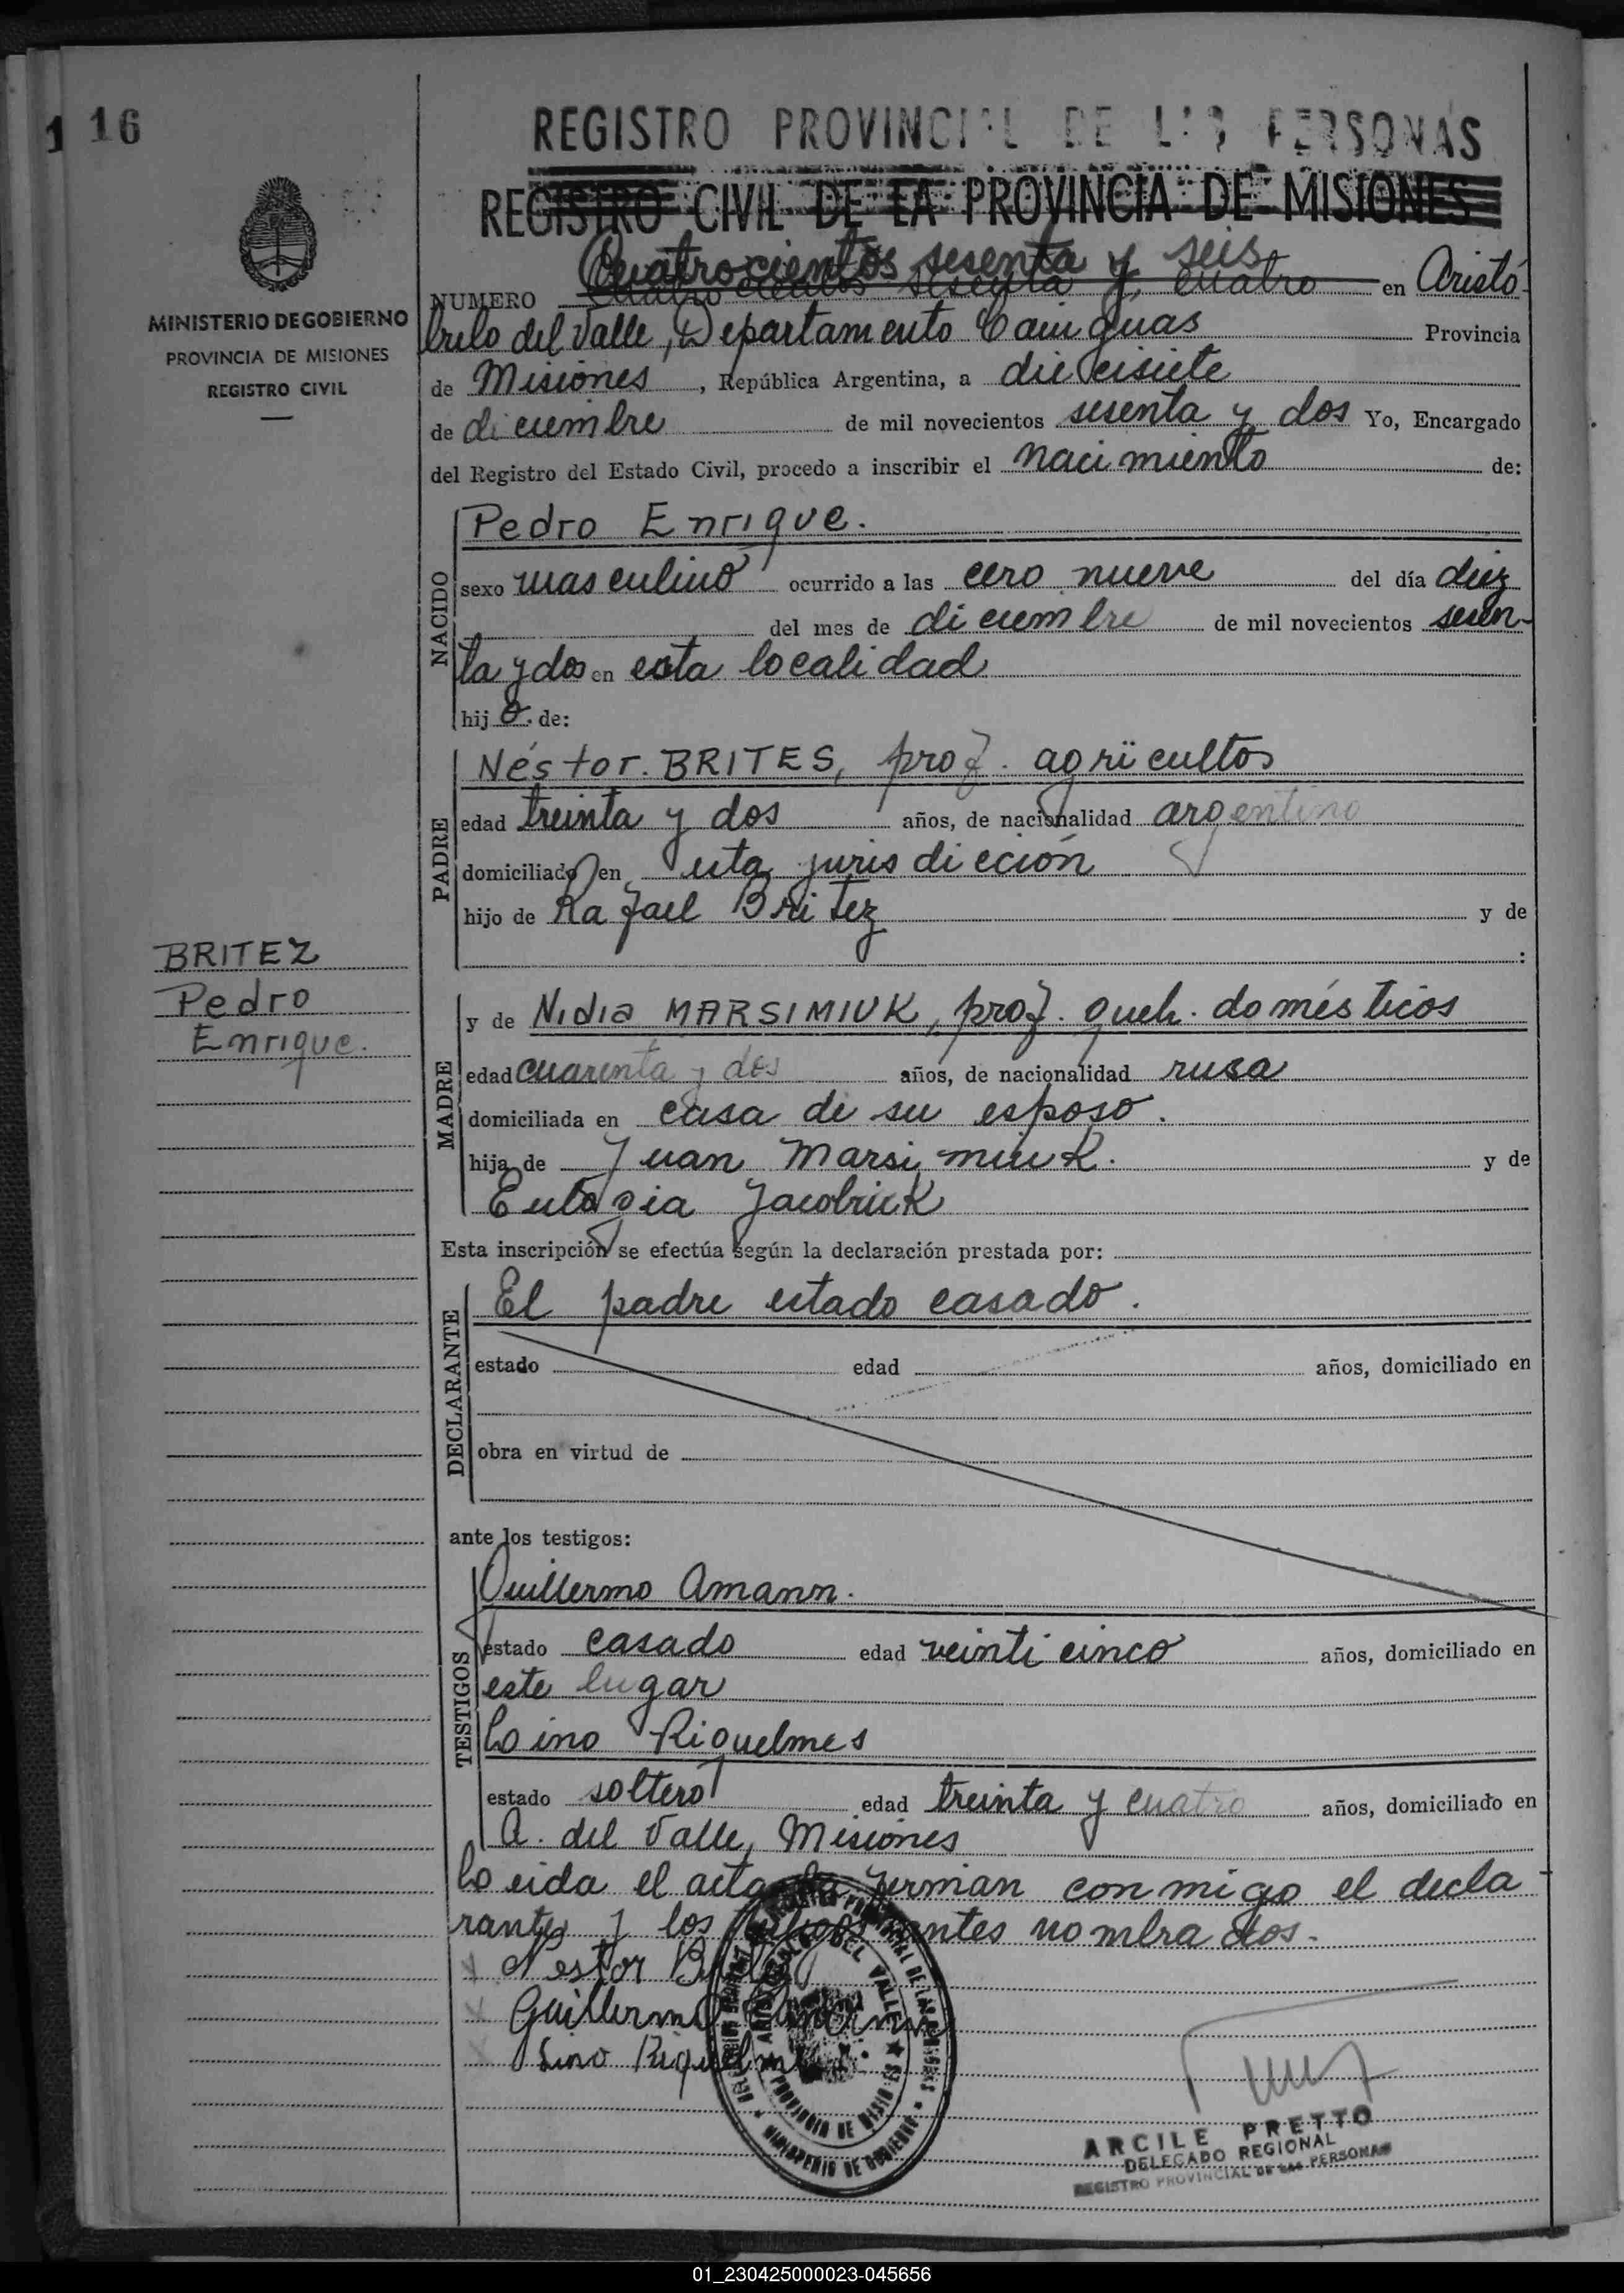 116
REGISTRO PROVINCIAL DE LAS PERSONAS
REGISTRO CIVIL DE LA PROVINCIA DE MISIONES
MINISTERIO DE GOBIERNO
PROVINCIA DE MISIONES
REGISTRO CIVIL
Cuatrocientos sesenta y seis
NUMERO Cuatro cientos sesenta y cuatro en Aristó-
bulo del Valle, Departamento Cainguas Provincia
de Misiones, República Argentina, a diecisiete
de diciembre de mil novecientos sesenta y dos Yo, Encargado
del Registro del Estado Civil, procedo a inscribir el nacimiento de:
NACIDO
Pedro Enrique.
sexo masculino ocurrido a las cero nueve del día diez
del mes de diciembre de mil novecientos sesen-
ta y dos en esta localidad
hijo de:
PADRE
Néstor BRITES, prof. agricultor
edad treinta y dos años, de nacionalidad argentino
domiciliado en esta jurisdicción
hijo de Rafael Britez y de
:
BRITEZ
Pedro
Enrique.
MADRE
y de Nidia MARSIMIUK, prof. queh. domésticos
edad cuarenta y dos años, de nacionalidad rusa
domiciliada en casa de su esposo.
hija de Juan Marsimiuk. y de
Eutogia Jacobiuk
Esta inscripción se efectúa según la declaración prestada por:
DECLARANTE
El padre estado casado.
estado edad años, domiciliado en
obra en virtud de
ante los testigos:
TESTIGOS
Guillermo Amann.
estado casado edad veinticinco años, domiciliado en
este lugar
Lino Riquelmes
estado soltero edad treinta y cuatro años, domiciliado en
A. del Valle, Misiones
Leida el acta la firman conmigo el decla
rante y los testigos antes nombrados.
x Nestor Britez
x Guillermo Amann
x Lino Riquelme
ARISTOBULO DEL VALLE
PROVINCIA DE MISIONES
MINISTERIO DE GOBIERNO
ARCILE PRETTO
DELEGADO REGIONAL
REGISTRO PROVINCIAL DE LAS PERSONAS
01_230425000023-045656